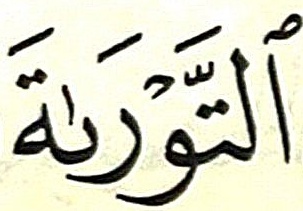 ٱلتَّوۡرَىٰةَ